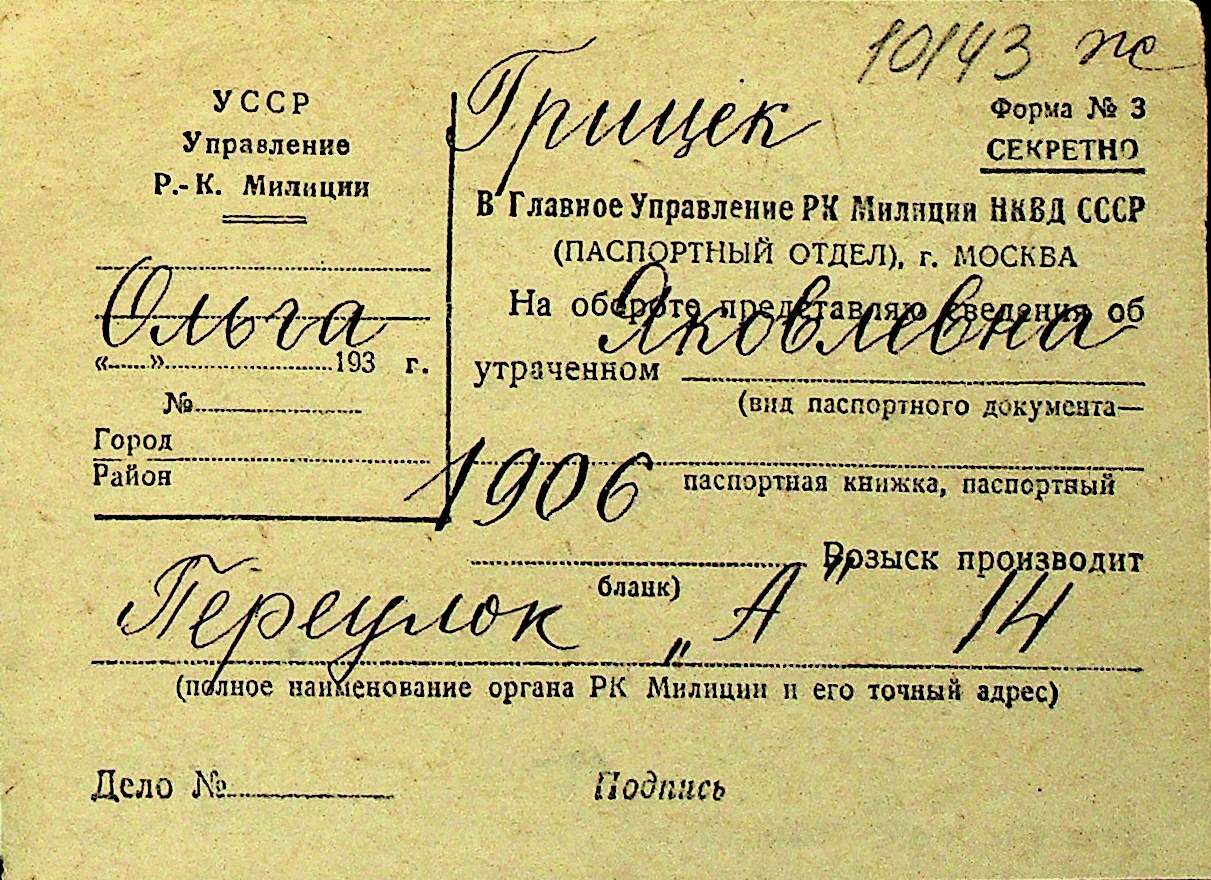 10143 ж
Грицек
УССР
Управление
Р.-К. Милиции
Форма № 3
СЕКРЕТНО
В Главное Управление РК Милиции НКВД СССР
(ПАСПОРТНЫЙ ОТДЕЛ), г. МОСКВА
Ольга Яковлевна
На обороте представляю сведения об
утраченном
(вид паспортного документа—
паспортная книжка, паспортный
бланк)
«......» 193 г.
№
Город
Район
1906
Розыск производит
Переулок „А" 14
(полное наименование органа РК Милиции и его точный адрес)
Дело №
Подпись